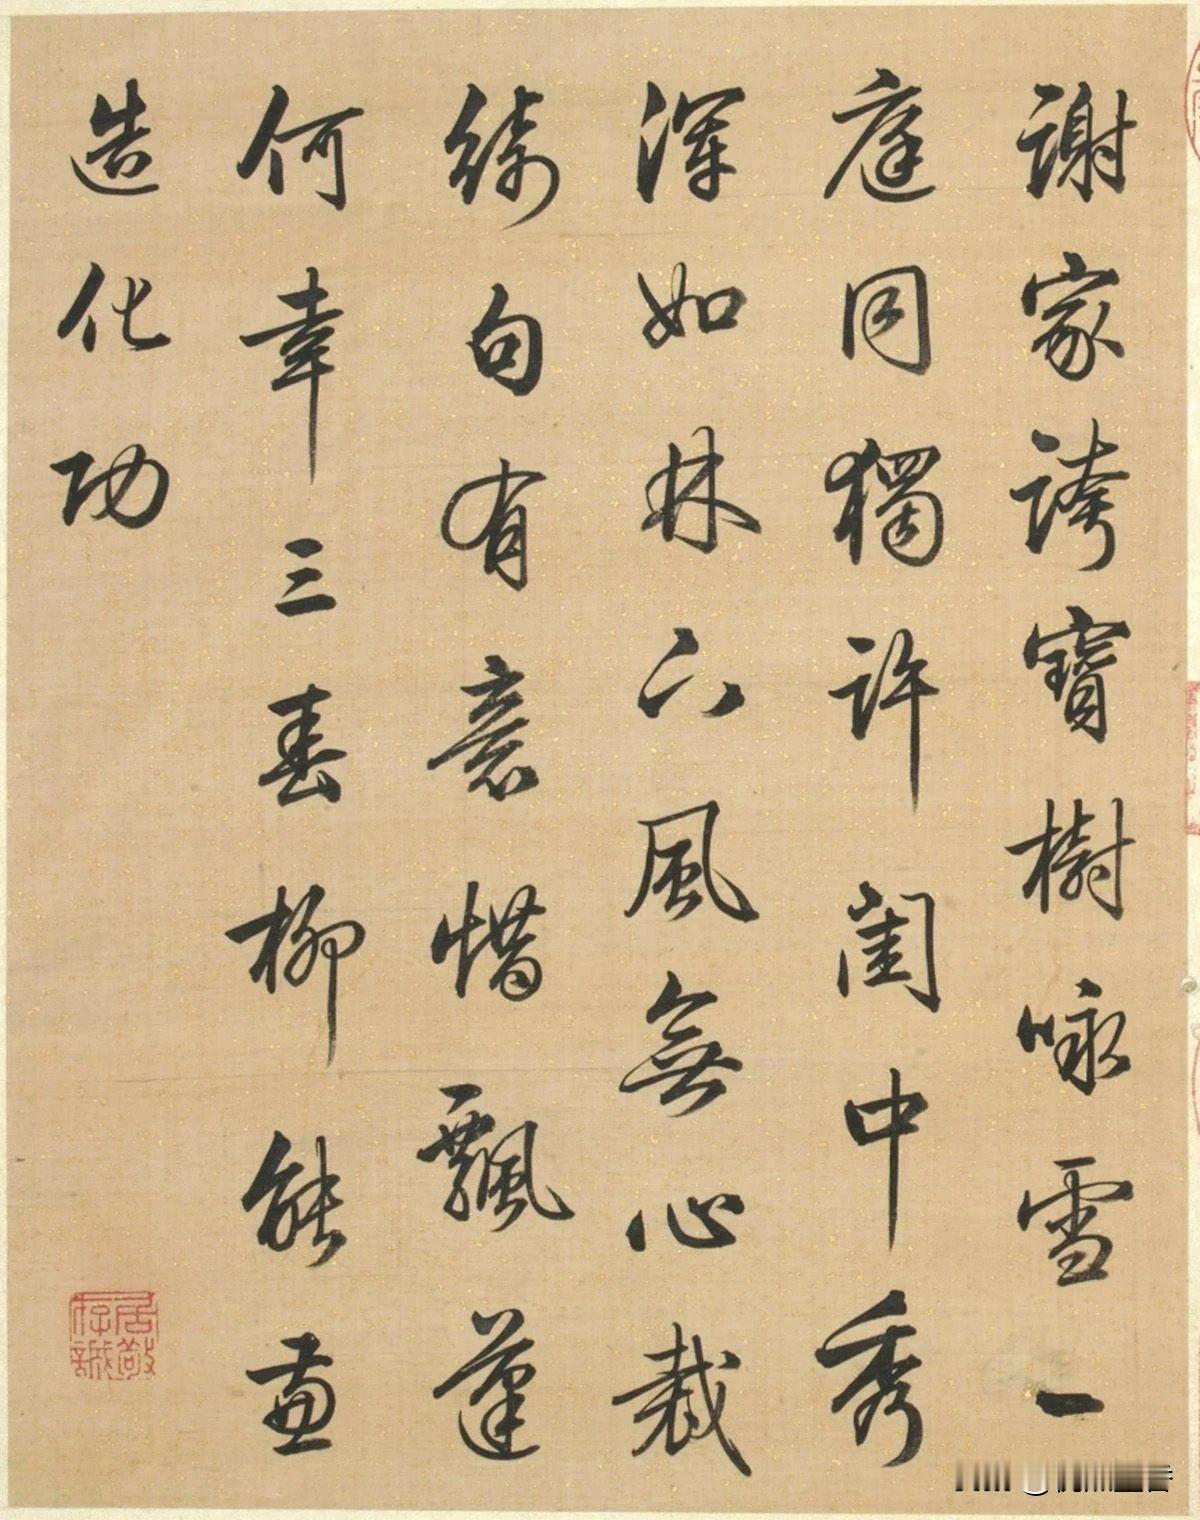 謝家誇寶樹咏雪一
庭同獨許閨中秀
渾如林下風無心裁
綺句有意惜飄蓬
何幸三春柳能畫
造化功
居敬
存誠